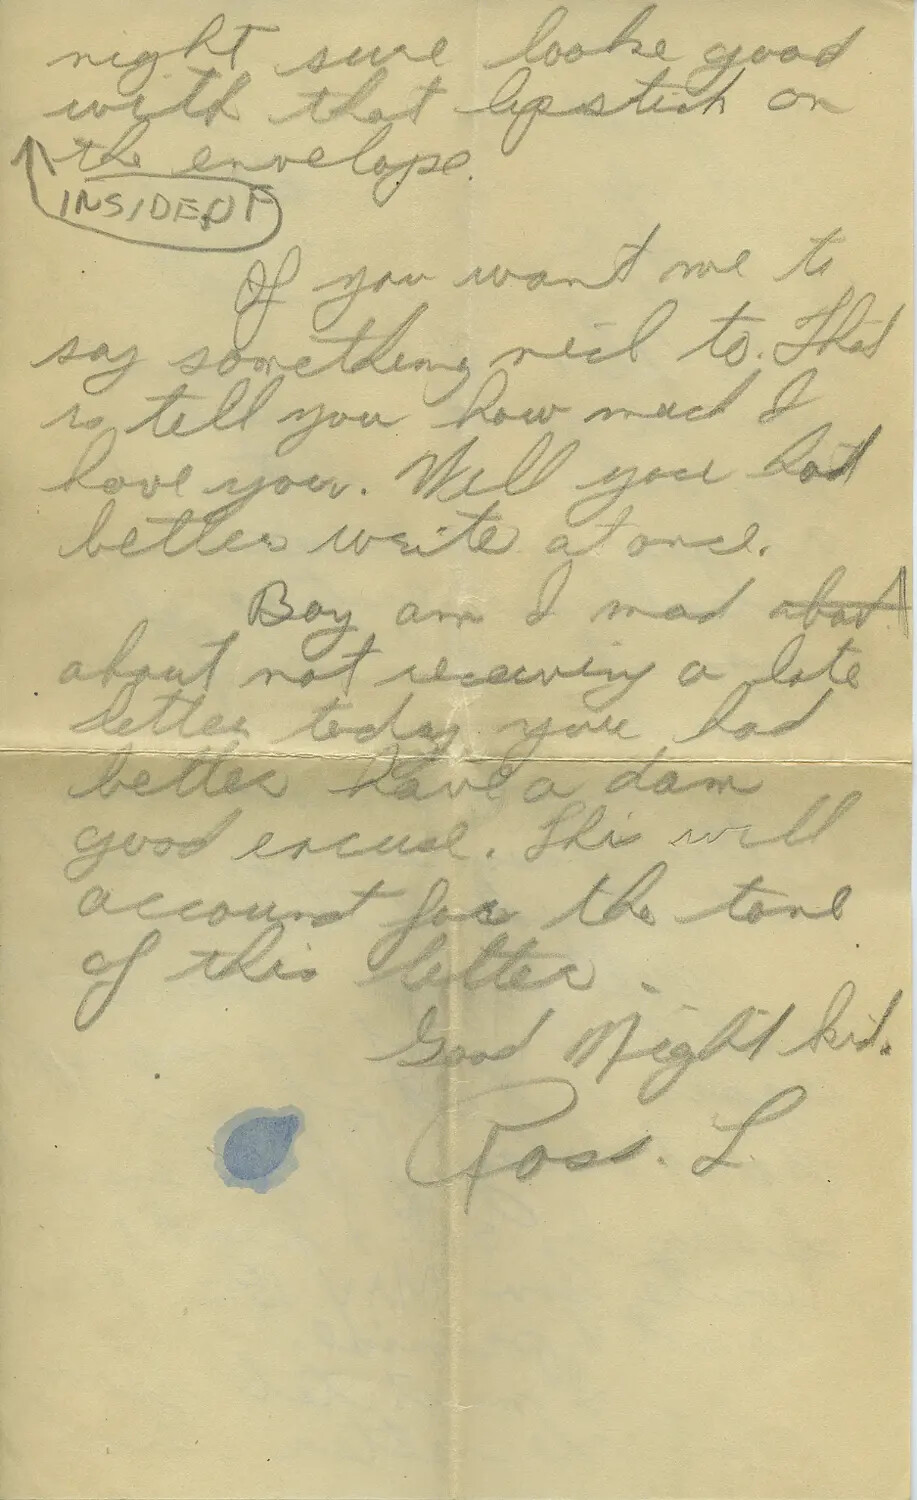 night sure looke good
with that lipstick on
the envelope.
INSIDE OF
If you want me to
say something nicl to. That
is tell you how mucl I
love you. Well you had
better write at once.
Boy am I mad abou
about not receiving a late
letter today you had
better have a dam
good excuse. This will
account for the tone
of this letter.
Good Night kid.
Ross. L